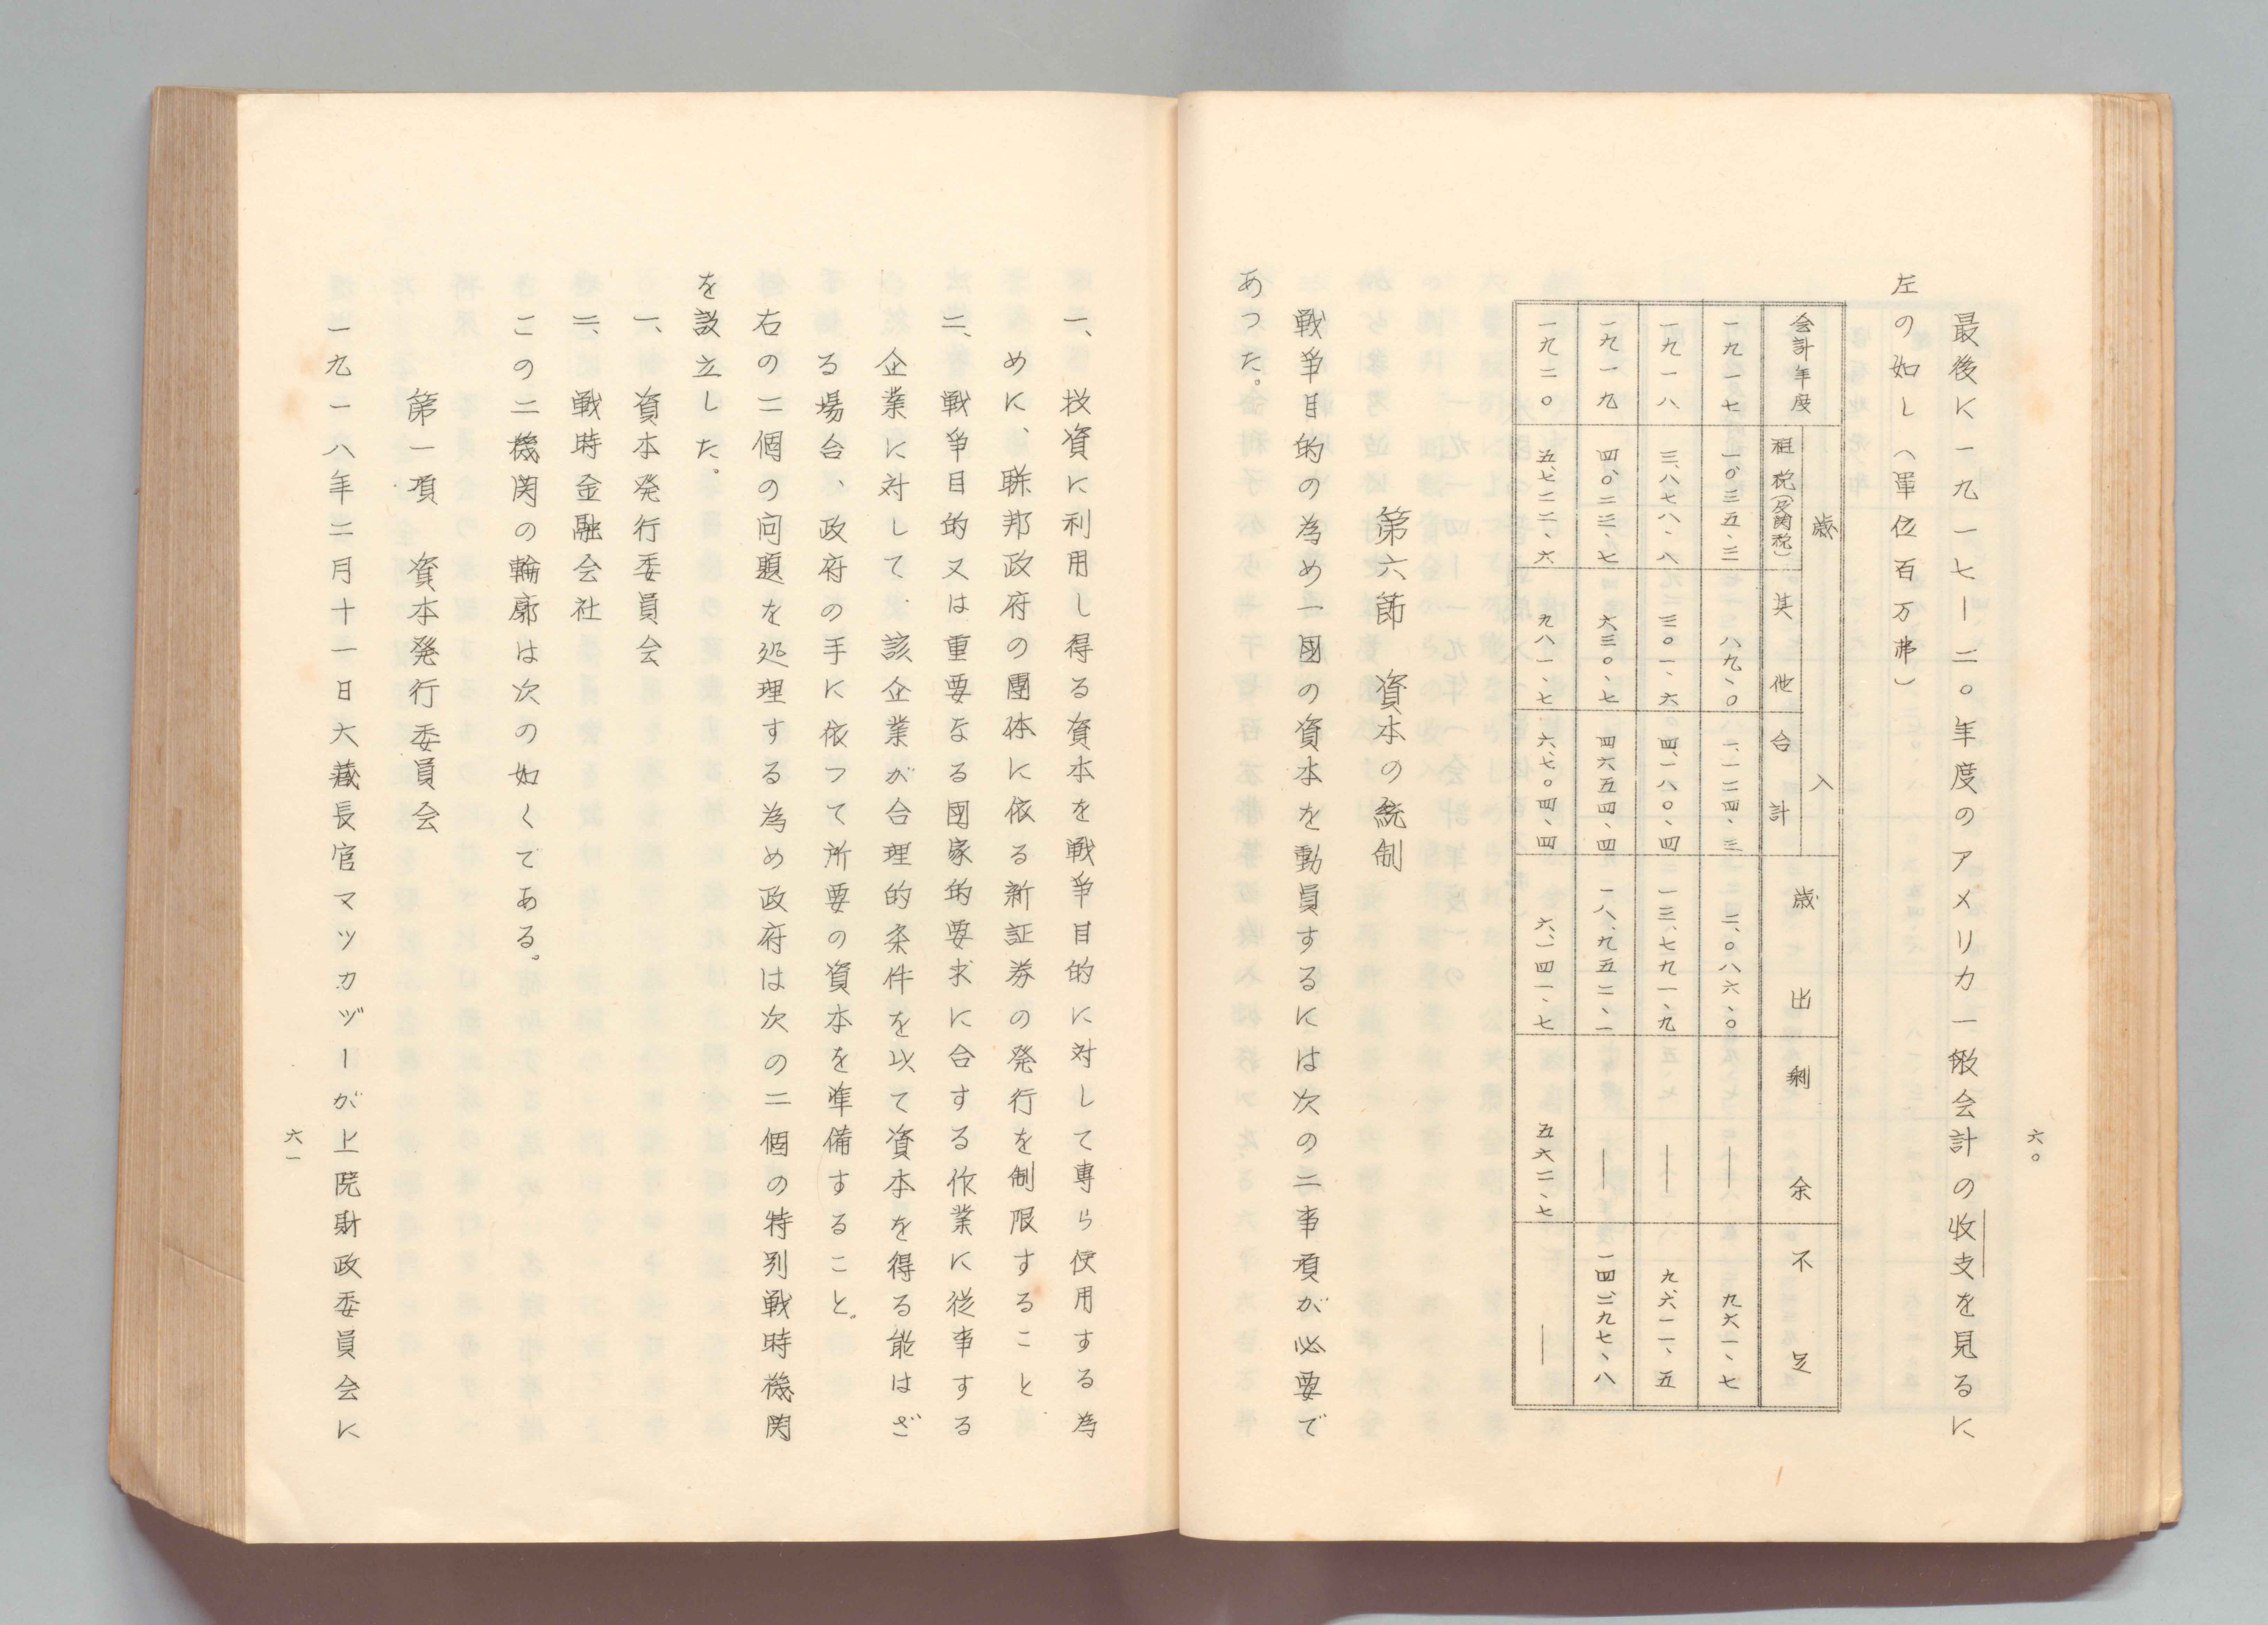 六〇
最後に一九一七―二〇年度のアメリカ一般会計の收支を見るに
左の如し（單位百万弗）
会計年度
歳入
租税（及関税）
其他
合計
歳出
剰余
不足
一九一七 一、〇三五、三 八九、〇 一、一二四、三 二、〇八六、〇 ―― 九六一、七
一九一八 三、八七八、八 三〇一、六 四、一八〇、四 一三、七九一、九 ―― 九、六一一、五
一九一九 四、〇二三、七 六三〇、七 四六五四、四 一八、九五二、一 ―― 一四、二九七、八
一九二〇 五、七二二、六 九八一、七 六、七〇四、四 六、一四一、七 五六二、七 ――
第六節 資本の統制
戦争目的の為め一國の資本を動員するには次の二事項が必要で
あつた。
一、投資に利用し得る資本を戦争目的に対して専ら使用する為
めに、聯邦政府の團体に依る新証券の発行を制限すること
二、戦争目的又は重要なる国家的要求に合する作業に従事する
企業に対して、該企業が合理的条件を以て資本を得る能はざ
る場合、政府の手に依つて所要の資本を準備すること。
右の二個の问題を処理する為め政府は次の二個の特別戦時機関
を設立した。
一、資本発行委員会
二、戦時金融会社
この二機関の輪廓は次の如くである。
第一項 資本発行委員会
一九一八年二月十一日大藏長官マツカヅーが上院財政委員会に
六一